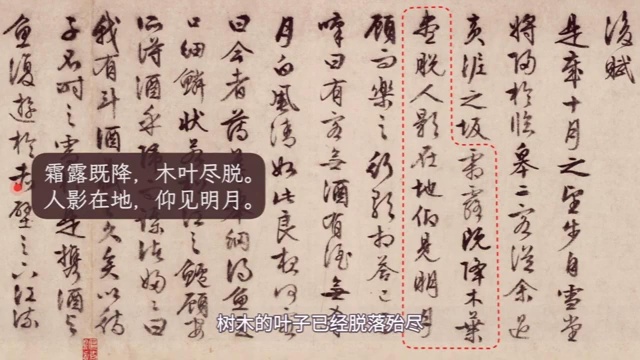 後賦
是歲十月之望步自雪堂
將歸於臨皋二客從余過
黃泥之坂霜露既降木葉
盡脫人影在地仰見明月
顧而樂之行歌相答已
嘆曰有客無酒有酒無
月白風清如此良夜何
曰今者薄網得魚
口細鱗狀之鱸顧安
所得酒乎歸諸婦曰
我有斗酒久矣以待
子不時之需是攜酒
魚復遊於赤壁之下江流
霜露既降，木叶尽脱。
人影在地，仰见明月。
树木的叶子已经脱落殆尽